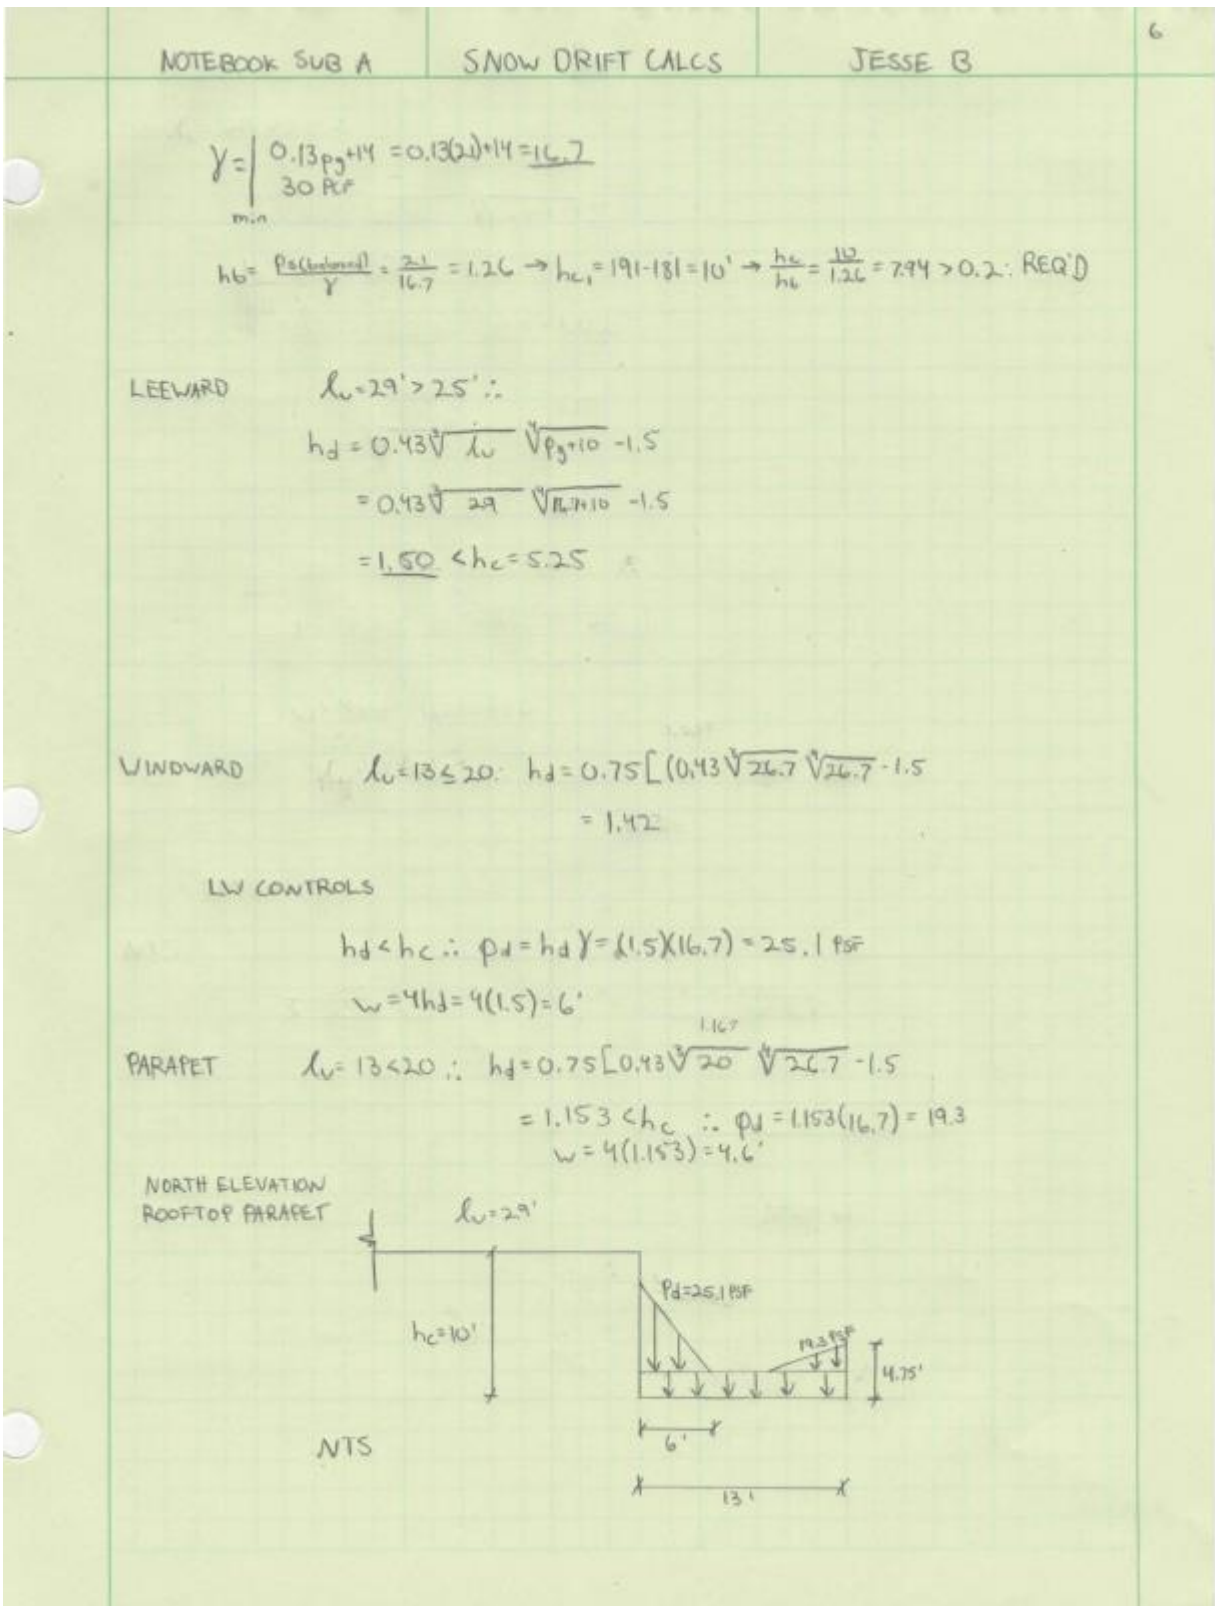 6
NOTEBOOK SUB A SNOW DRIFT CALCS JESSE B
γ = | 0.13pg+14 = 0.13(21)+14 = 16.7
30 PCF
min
hb = Ps(balanced)/γ = 21/16.7 = 1.26 → hc, = 191-181 = 10' → hc/hb = 10/1.26 = 7.94 > 0.2 ∴ REQ'D
LEEWARD lu = 29' > 25' ∴
hd = 0.43 ∛lu ∜pg+10 - 1.5
= 0.43 ∛29 ∜16.7+10 - 1.5
= 1.50 < hc = 5.25
WINDWARD lu = 13 ≤ 20 ∴ hd = 0.75[(0.43 ∛26.7 ∜26.7 - 1.5
= 1.42
LW CONTROLS
hd < hc ∴ pd = hdγ = (1.5)(16.7) = 25.1 PSF
w = 4hd = 4(1.5) = 6'
1.167
PARAPET lu = 13 < 20 ∴ hd = 0.75[0.43 ∛20 ∜26.7 - 1.5
= 1.153 < hc ∴ pd = 1.153(16.7) = 19.3
w = 4(1.153) = 4.6'
NORTH ELEVATION
ROOFTOP PARAPET lu = 29'
Pd = 25.1 PSF
hc = 10' 19.3 PSF
4.75'
6'
NTS
13'